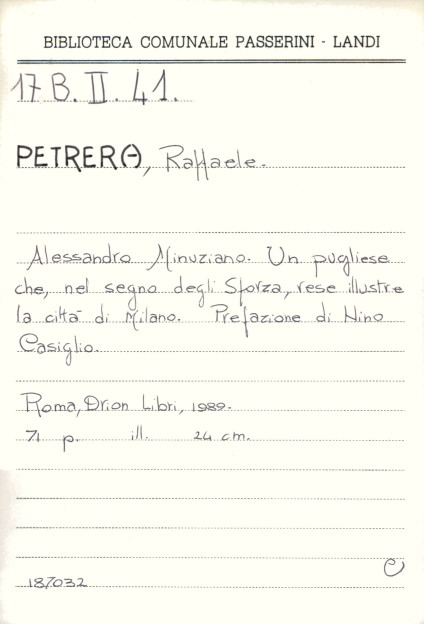 BIBLIOTECA COMUNALE PASSERINI - LANDI
17 B. II. 41.
PETRERA, Raffaele.
Alessandro Minuziano. Un pugliese
che, nel segno degli Sforza, rese illustre
la città di Milano. Prefazione di Nino
Casiglio.
Roma, Orion Libri, 1989.
71 p. ill. 24 cm.
187032